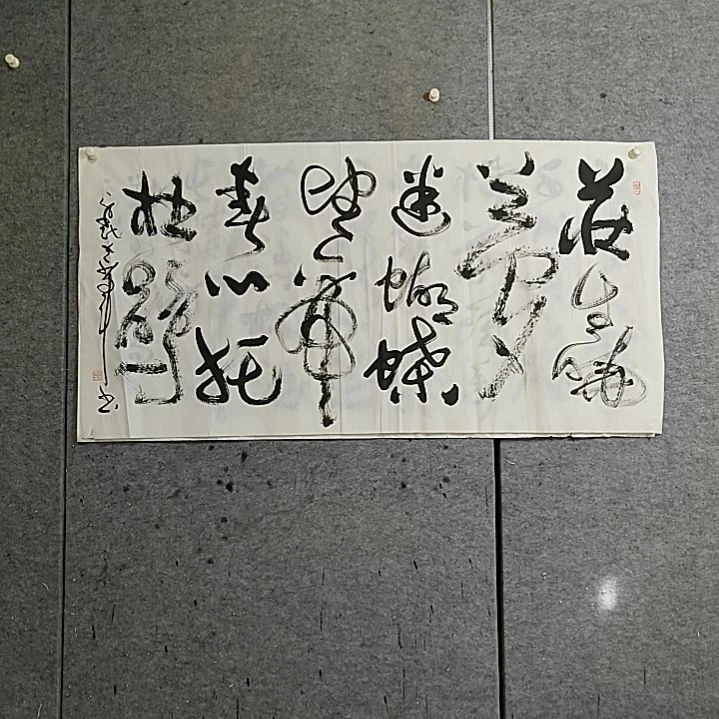 莊生曉
夢
迷蝴蝶
望帝
春心托
杜鵑
書